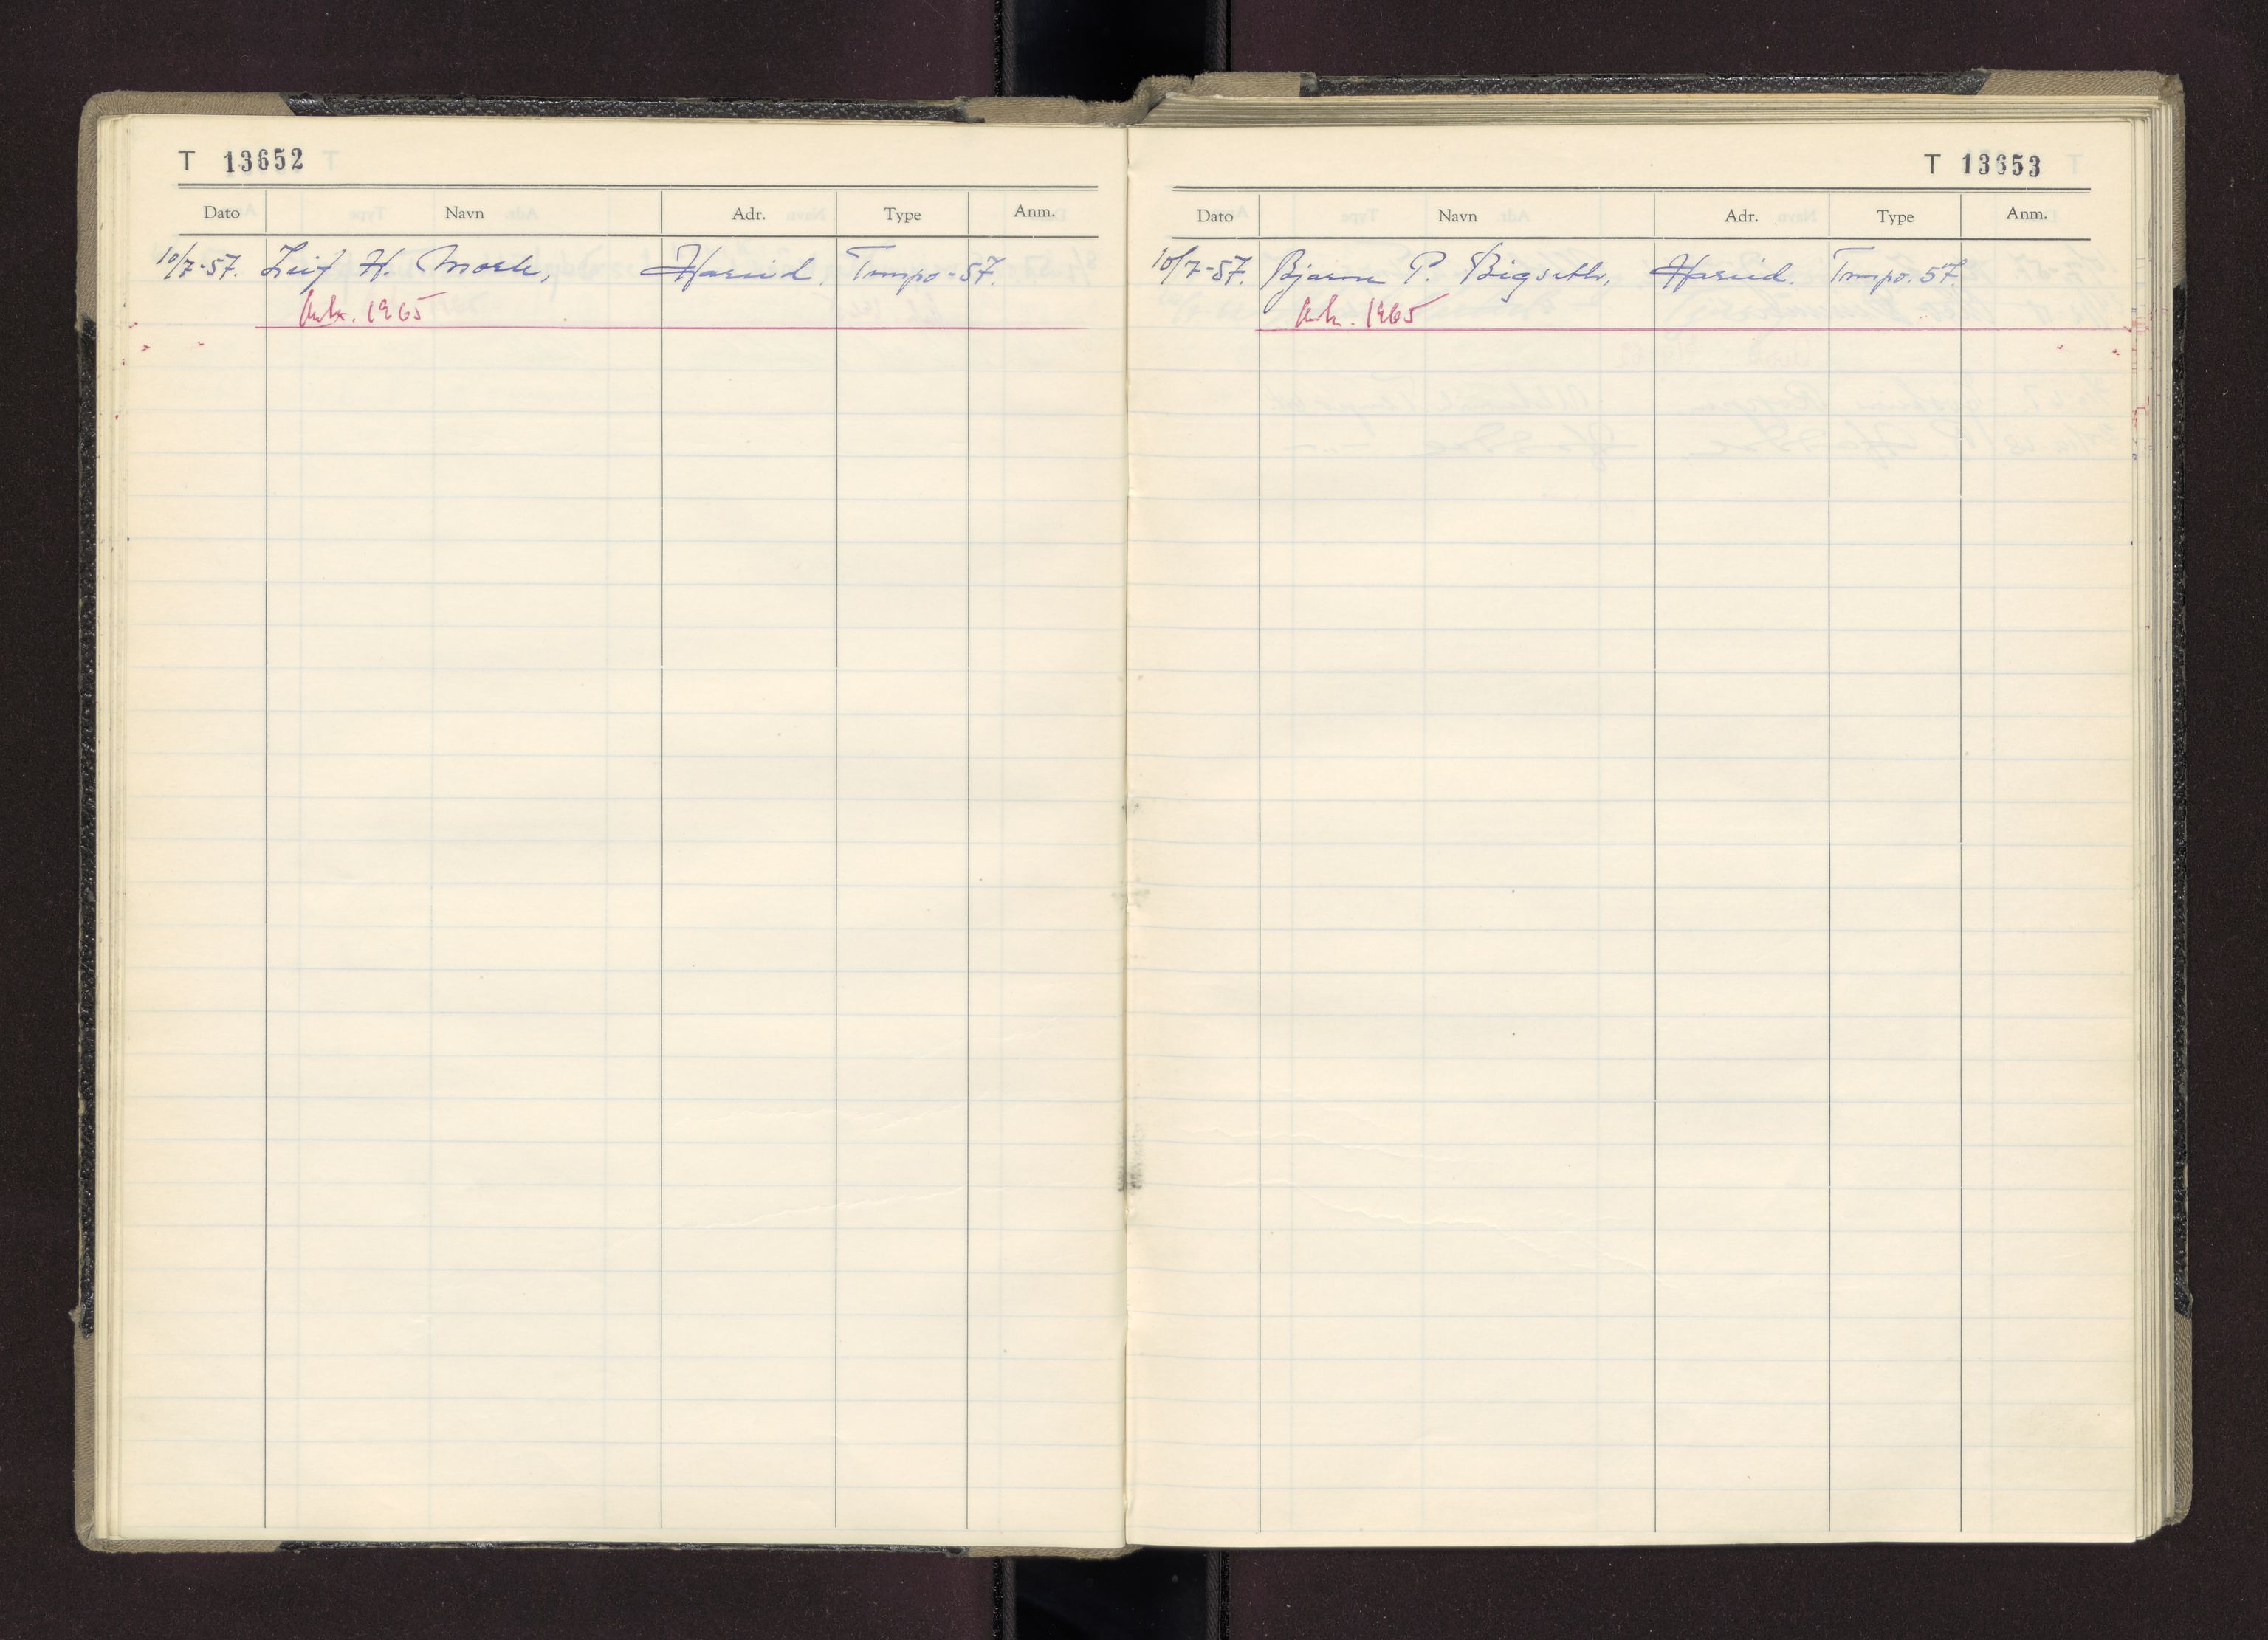 T 13652
Dato Navn Adr. Type Anm.
10/7-57. Leif H. Mork, Hareid. Tempo-57.
1965
T 13653
Dato Navn Adr. Type Anm.
10/7-57. Bjarne P. Bigseth, Hareid. Tempo. 57.
1965